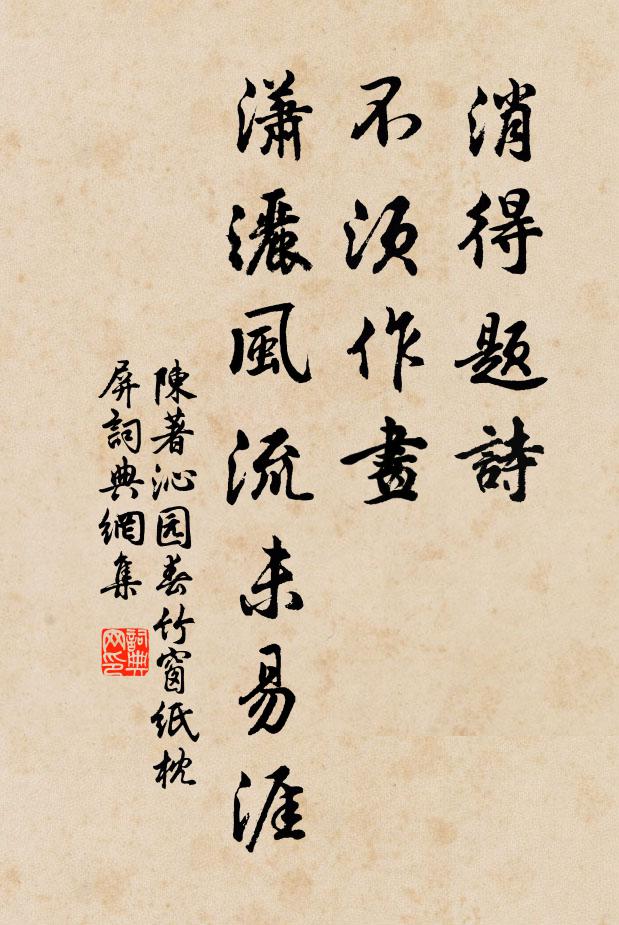 消得題詩
不須作畫
瀟灑風流未易涯
陳著沁园春竹窗紙枕
屏詞典網集
詞典
网印